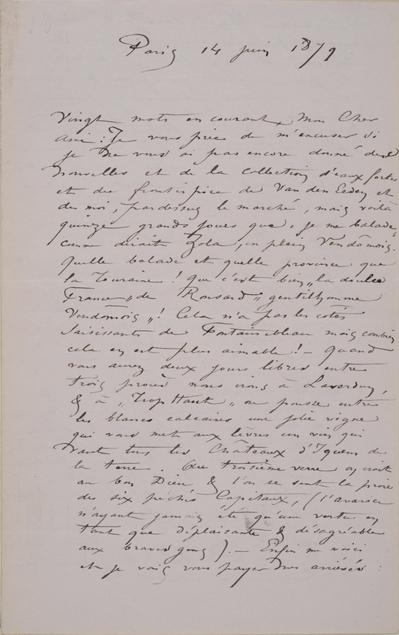 Paris 14 juin 1879
Vingt mots en courant, Mon Cher
ami : Je vous prie de m'excuser si
je ne vous ai pas encore donné des
nouvelles et de la collection d'eaux fortes
et du frontispice de Van den Eeden et
de moi, par dessus le marché, mais voilà
quinze grands jours que je me balade,
comme dirait Zola, en plein Vendomois.
quelle balade et quelle province que
la Touraine ! Que c'est bien „la doulce
France„ de Ronsard„ gentilhomme
Vendomois„! Cela n'a pas les côtés
saisissants de Fontainebleau mais combien
cela en est plus aimable ! — Quand
vous aurez deux jours libres entre
trois nous irons à Lavardin,
& à „Trop Haut„ où pousse entre
les blancs calcaires une jolie vigne
qui vous met aux lèvres un vin qui
vaut tous les Châteaux d'Yquem de
la terre. Au troisième verre on croit
au bon Dieu & l'on se sent la proie
des six péchés Capitaux, (l'avarice
n'ayant jamais été qu'une vertu en
tant que déplaisante & désagréable
aux braves gens). — Enfin me voici
et je vais vous payer mes arriérés :